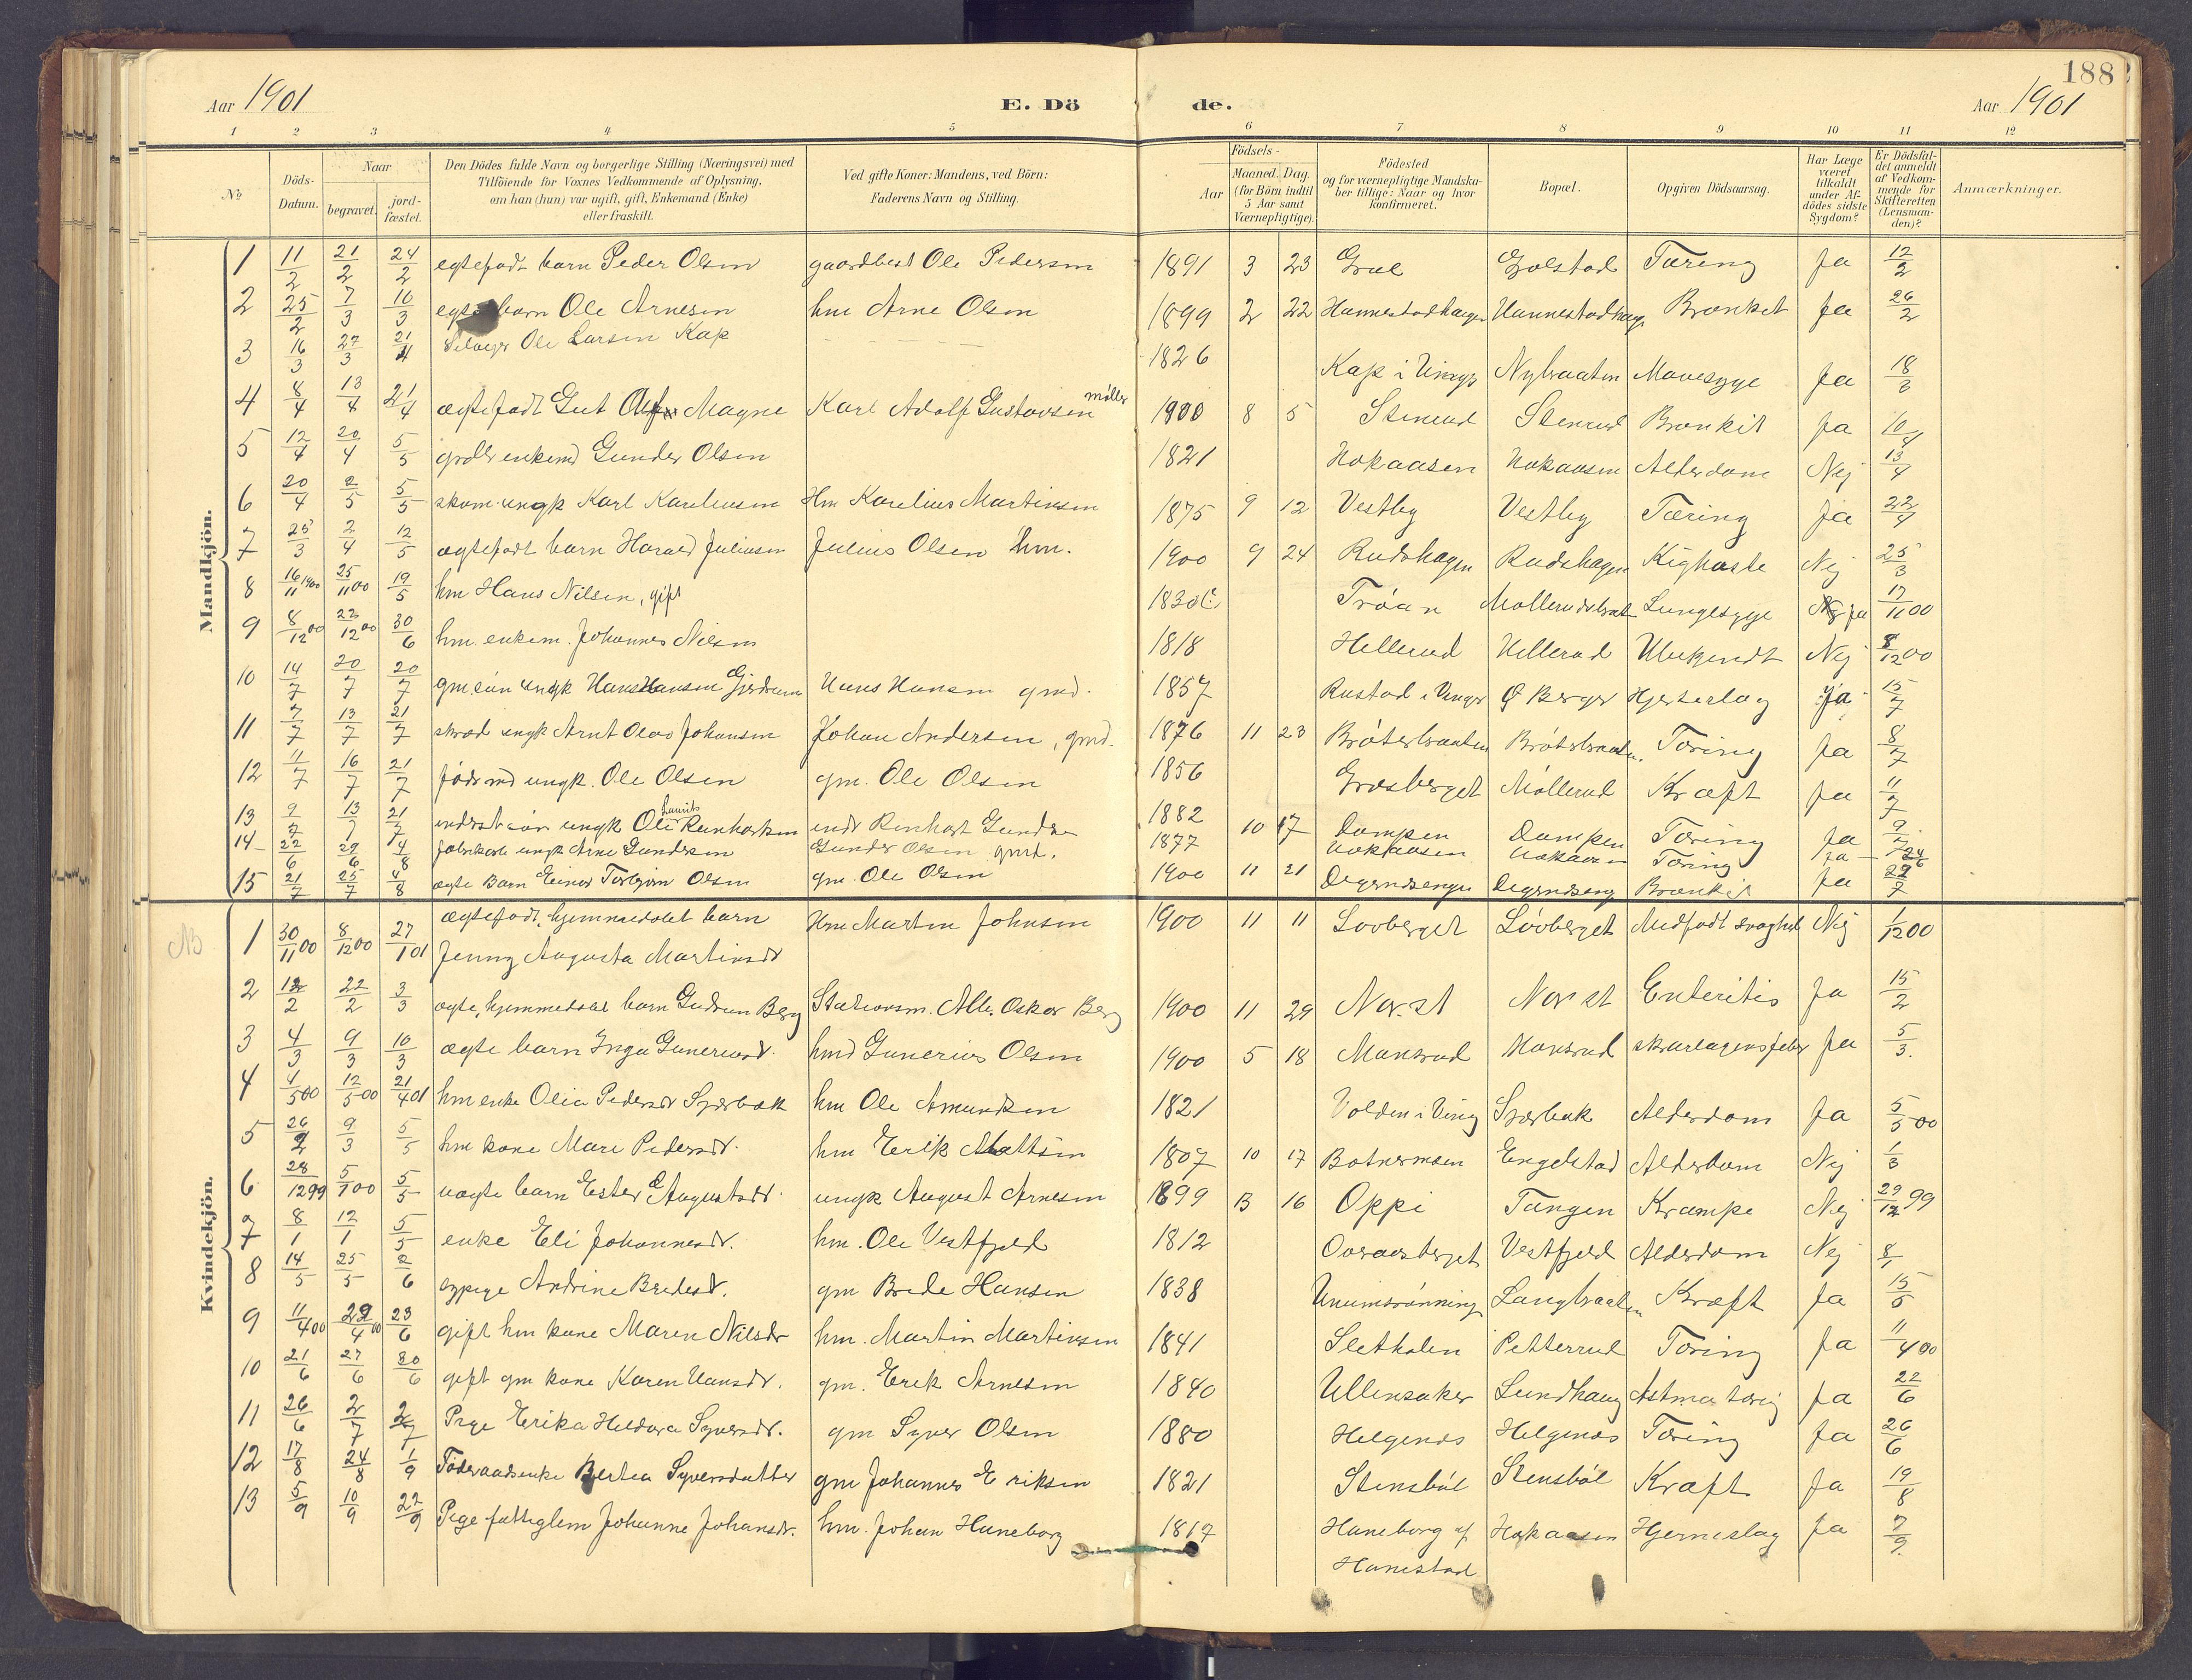 188
Aar 1901 E. Dö de. Aar 1901
1 2 3 4 5 6 7 8 9 10 11 12
№ Döds-Datum. Naar begravet. jord-fæstet. Den Dödes fulde Navn og borgerlige Stilling (Næringsvei) med Tilföiende for Voxnes Vedkommende af Oplysning, om han (hun) var ugift, gift, Enkemand (Enke) eller fraskilt. Ved gifte Koner: Mandens, ved Börn: Faderens Navn og Stilling. Födsels- Aar Maaned. Dag. (for Börn indtil 5 Aar samt Værnepligtige). Födested og for værnepligtige Mandska-ber tillige: Naar og hvor konfirmeret. Bopæl. Opgiven Dödsaarsag. Har Læge været tilkaldt under Af-dödes sidste Sygdom? Er Dödsfal-det anmeldt af Vedkom-mende for Skifteretten (Lensman-den)? Anmærkninger.
Mandkjön.
1 11/2 21/2 24/2 egtefødt barn Peder Olsen gaardbest Ole Pedersen 1891 3 23 Golstad Tæring Ja 12/2
2 25/2 7/3 10/3 barn Ole Arnesen hm Arne Olsen 1899 2 22 Hannestadhagen Hannestadhag Bronket Ja 26/2
3 16/3 27/3 21/4 Ole Larsen Kap 1826 Kap i Vinger Nybraaten Mavesyge Ja 18/3
4 8/4 13/4 21/4 ægtefødt Gut Magne Karl Adolf Gustavsen møller 1900 8 5 Stenrud Stenrud Bronkit Ja 10/4
5 12/4 20/4 5/5 enkemd Gunder Olsen 1821 Hokaasen Hokaasen Alderdom Nej 13/4
6 20/4 2/5 5/5 skom. ungk Karl Kareliusen Hm Karelius Martinsen 1875 9 12 Vestby Vestby Tæring Ja 22/4
7 25/3 2/4 12/5 ægtefødt barn Harald Juliusen Julius Olsen hm. 1900 9 24 Rudshagen Rudshagen Kighoste Nej 25/3
8 16/11 1900 25/11 00 19/5 hm Hans Nilsen, gift 1830 Trøan Lungesyge Ja 17/11 00
9 8/12 00 22/12 00 30/6 hm. enkem. Johannes Nilsen 1818 Hellerud Hellerud Ubekjendt Nej 8/12 00
10 14/7 20/7 20/7 gm søn ungk Hans Hansen Gjerdrum Hans Hansen gmd. 1857 Rustad i Vinger Ø Berger Hjerteslag Ja 15/7
11 7/7 13/7 21/7 skræd ungk Arnt Olav Johansen Johan Andersen, gmd. 1876 11 23 Brøterbraaten Brøterbraaten Tæring Ja 8/7
12 11/7 16/7 21/7 ungk. Ole Olsen gm. Ole Olsen 1856 Græsberget Møllerud Kræft Ja 11/7
13 9/7 13/7 21/7 inderst søn ungk Ole Laurits Reinhartsen inds Reinhart Gunders 1882 10 17 Dampen Dampen Tæring Ja 9/7
14 22/6 29/6 4/8 ungk Arne Gundersen Gunder Olsen gmd. 1877 Hokaasen Hokaasen Tæring Ja 24/6
15 21/7 25/7 4/8 ægte Barn Einar Torbjørn Olsen gm. Ole Olsen 1900 11 21 Bronkit Ja 22/7
Kvindekjön.
NB 1 30/11 00 8/12 00 27/1 01 ægtefødt, hjemmedøbt barn Hm Martin Johnsen 1900 11 11 Løvberget Løvberget Medfødt svaghed Nej 1/12 00
Jenny Augusta Martinsdt
2 12/2 22/2 3/3 ægte, hjemmedøbt barn Gudrun Berg Stationsm. Alb. Oskar Berg 1900 11 29 Nor. st Nor st Enteritis Ja 15/2
3 4/3 9/3 10/3 ægte barn Inga Guneriusd. hmd Gunerius Olsen 1900 5 18 Monsrud Monsrud skarlagensfeber Ja 5/3.
4 4/5 00 12/5 00 21/4 01 hm enke Olia Pedersdt Sjørbæk hm Ole Amundsen 1821 Volden i Ving Alderdom Ja 5/5 00
5 26/2 9/3 5/5 hm kone Mari Pedersdt. hm Erik Mattsen 1807 10 17 Engelstad Alderdom Nej 1/3
6 28/12 99 5/1 00 5/5 uægte barn Ester Augustsdt. ungk August Arnesen 1899 16 Oppi Tangen Krampe Nej 29/12 99
7 8/1 12/1 5/5 enke Eli Johannesdt. hm. Ole Vestfjeld 1812 Vestfjeld Alderdom Nej 8/1
8 14/5 25/5 2/6 Andrine Bredesd. gm Brede Hansen 1838 Langbraaten Kræft Ja 15/5
9 11/4 00 22/4 00 23/6 gift hm kone Maren Nilsdr hm. Martin Martinsen 1841 Sletholen Petterrud Tæring Ja 11/4 00
10 21/6 27/6 30/6 gift gm kone Karen Hansdt. gm. Erik Arnesen 1840 Ullensaker Lundhaug Astma tæring Ja 22/6
11 26/6 2/7 2/7 Pige Erika Heldora Syversdt. gm Syver Olsen 1880 Helgenæs Helgenæs Tæring Ja 26/6
12 17/8 24/8 1/9 Föderaadsenke Bertea Syversdatter gm Johannes Eriksen 1821 Stensbøl Stensbøl Kræft Ja 19/8
13 5/9 10/9 22/9 Pige fattiglem Johanne Johansdt. hm. Johan Haneborg 1817 Haneborg af Hokaasen Hjerneslag Ja 7/9.
Hanestad